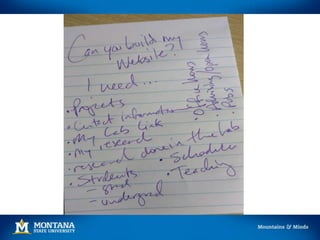 Can you build my
Website?!
I need...
• Projects
• Contact information
• My Lab Link
• My research
• research done in the lab
• Students
- grad
- undergrad
• Schedule
• Teaching
• Office hours
• Pubs
MONTANA
STATE UNIVERSITY
Mountains & Minds